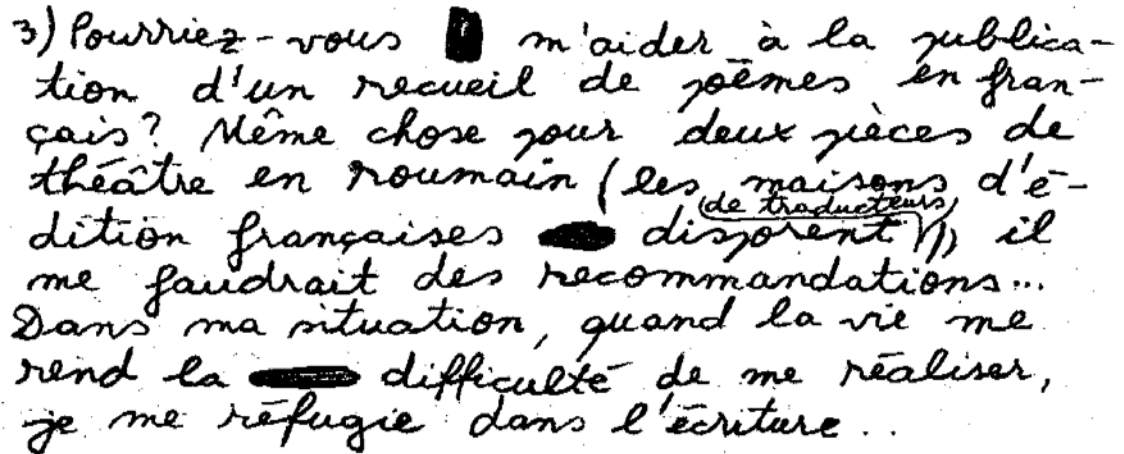 3) Pourriez-vous m'aider à la publica-
tion d'un recueil de poēmes en fran-
çais? Même chose pour deux pièces de
théâtre en roumain (les maisons d'é-
dition françaises disposent de traducteurs), il
me faudrait des recommandations...
Dans ma situation, quand la vie me
rend la difficulté de me réaliser,
je me réfugie dans l'écriture..